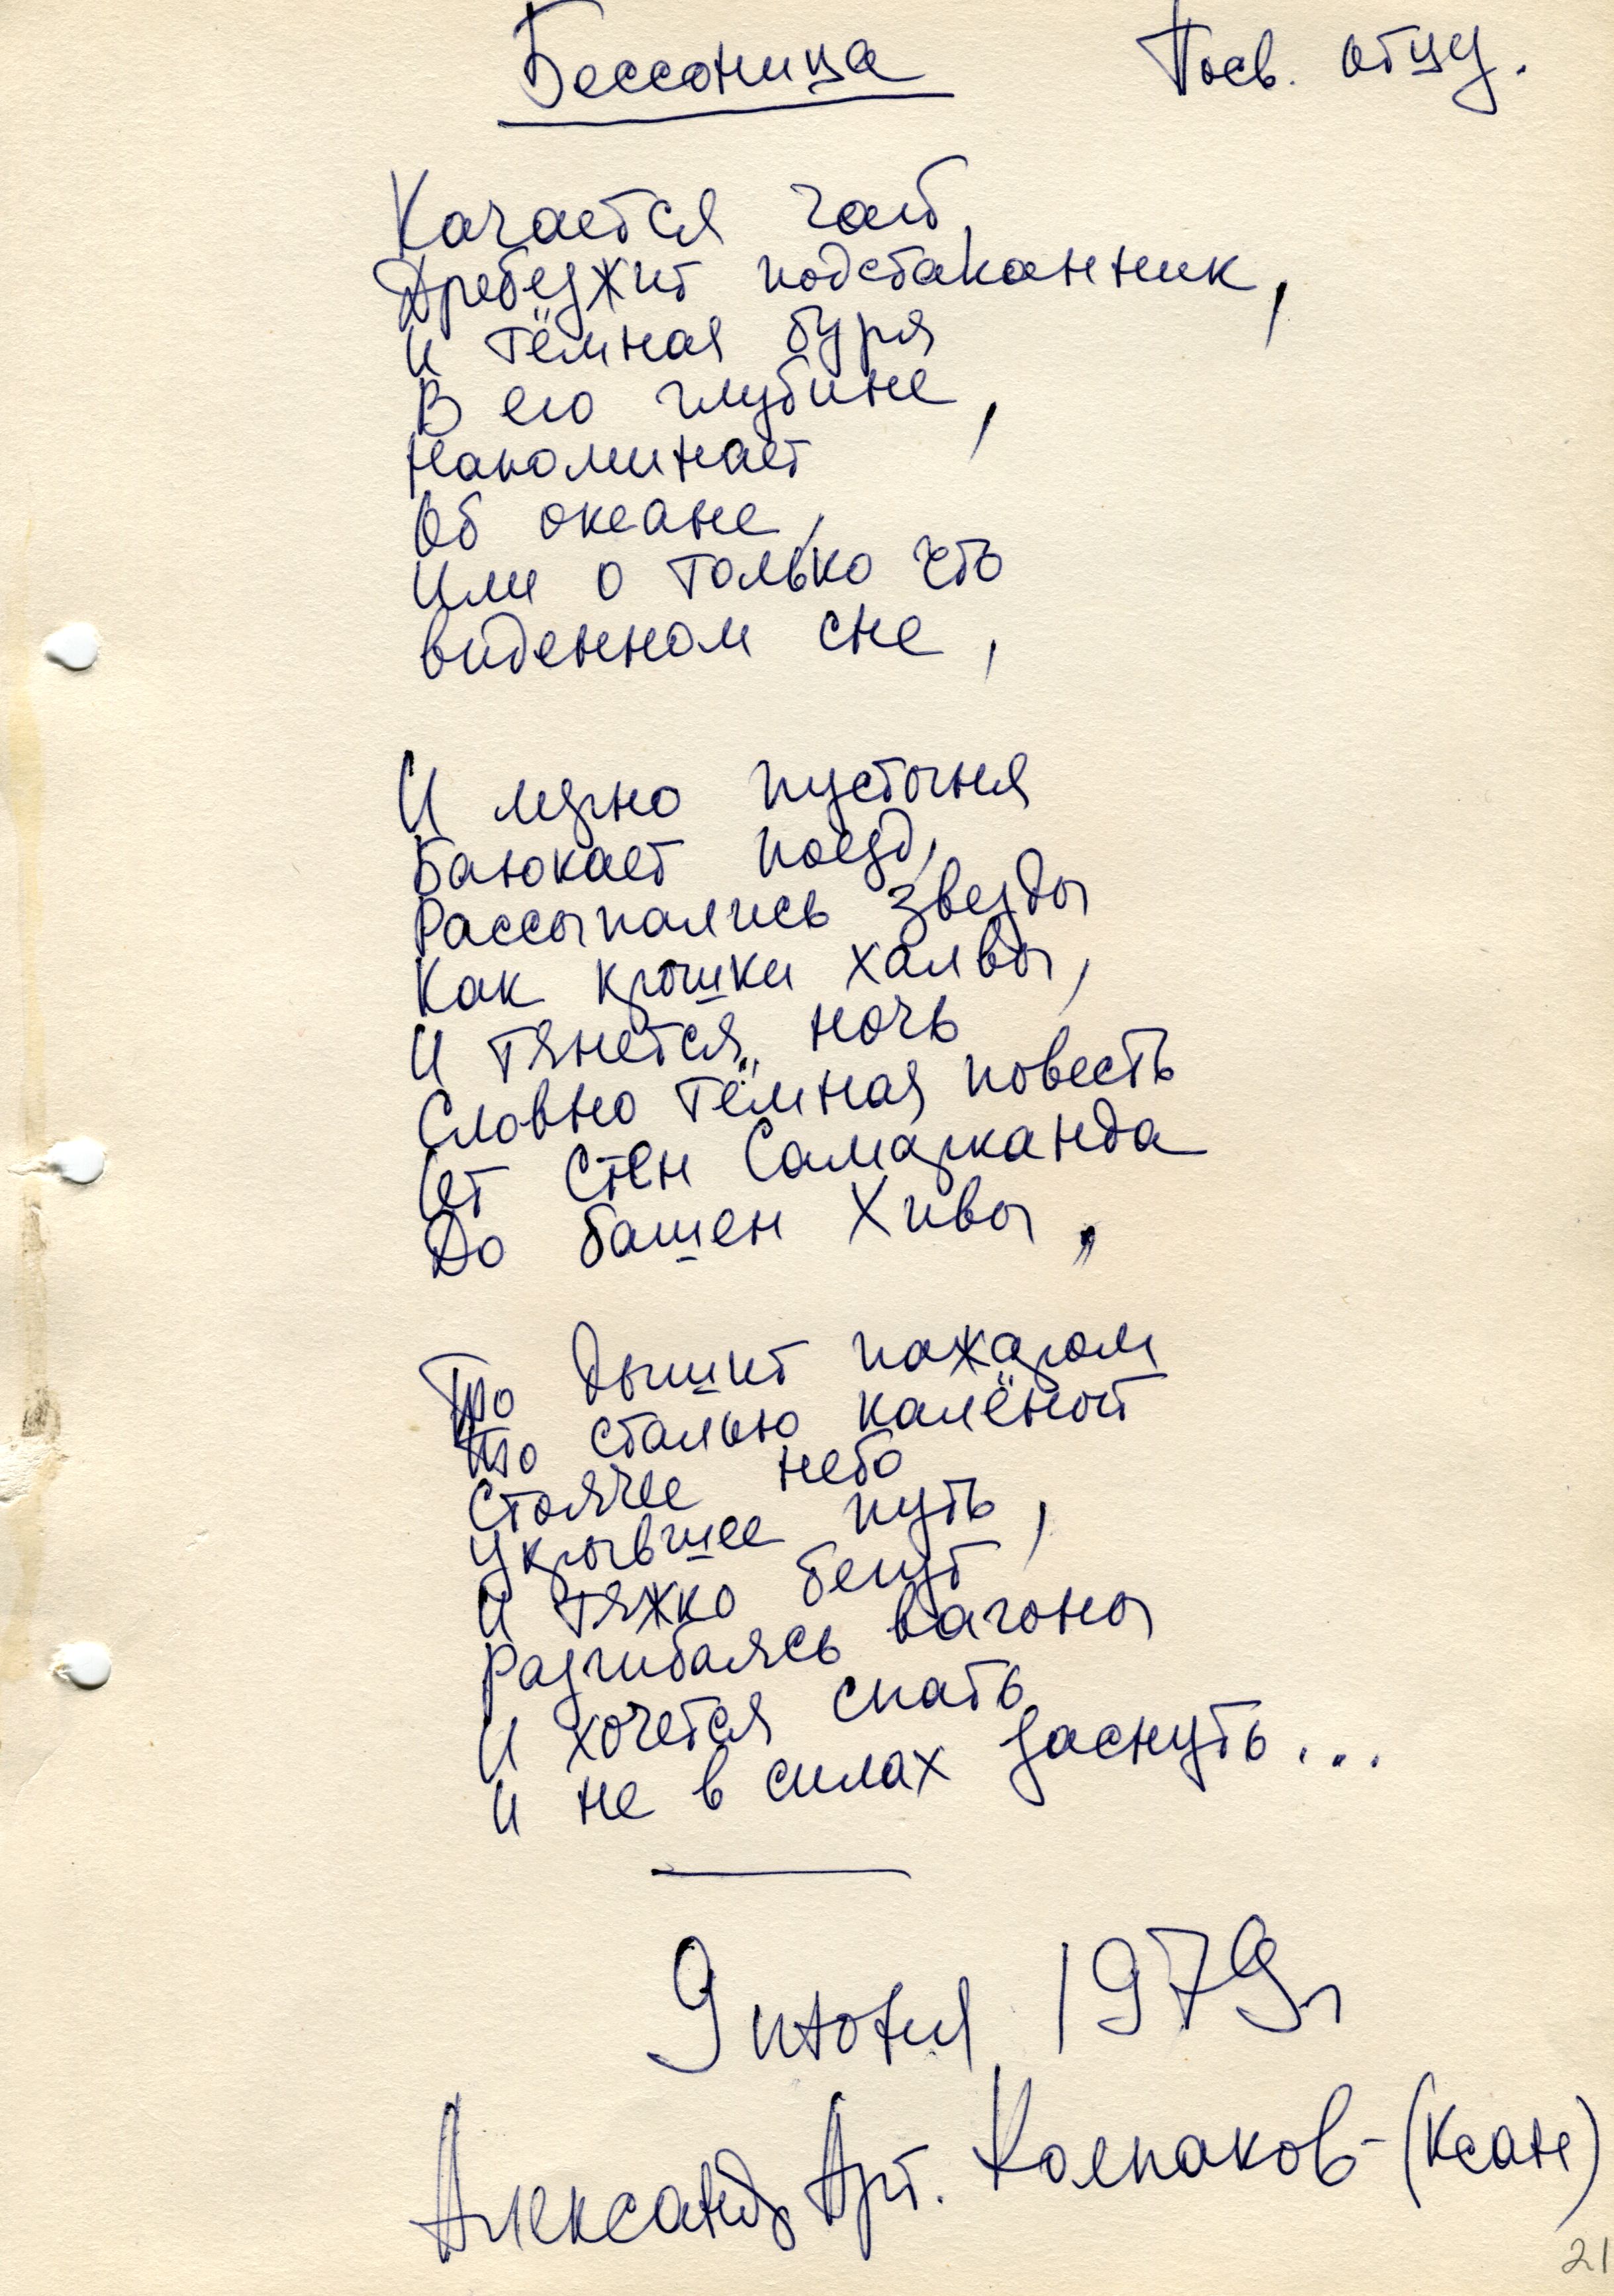 Бессоница Посв. отцу.
Качается чай,
Дребезжит подстаканник,
И тёмная буря
В его глубине,
Напоминает
Об океане,
Или о только что
виденном сне,
И мерно пустыня
Баюкает поезд,
Рассыпались звезды
Как крошки халвы,
И тянется ночь
Словно тёмная повесть
От стен Самарканда
До башен Хивы,
То дышит пожаром
То сталью калёной
Стоячее небо
Укрывшее путь,
И тяжко бегут
Разгибаясь вагоны
И хочется спать
И не в силах заснуть...
9 июля 1979г
Александр Арт. Колпаков-(Ксан)
21